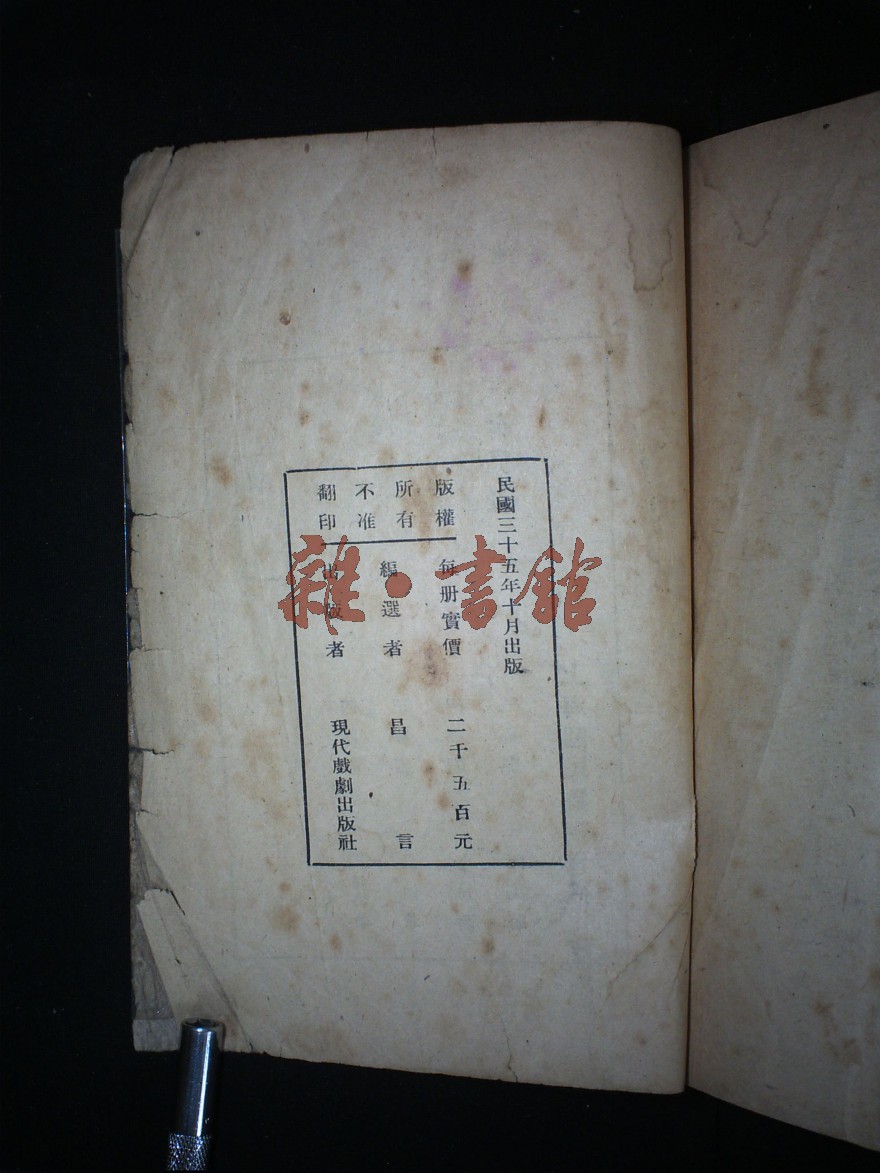 民國三十五年十月出版
版權
所有
不准
翻印
每册實價 二千五百元
編選者 昌言
出版者 現代戲劇出版社
雜·書館